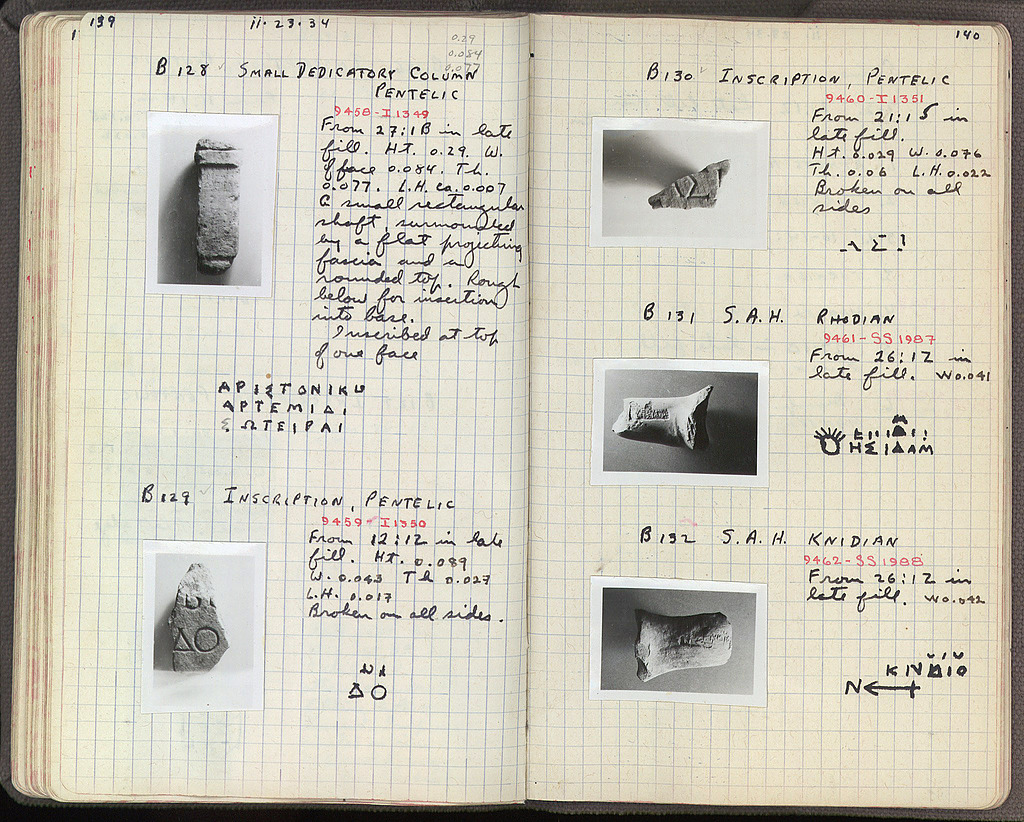 139
11·23·34
0.29
0.084
0.077
B 128 ✓ SMALL DEDICATORY COLUMN
PENTELIC
9458-I 1349
From 27:1B in late
fill. Ht. 0.29. W.
of face 0.084. Th.
0.077. L.H. ca. 0.007
A small rectangular
shaft, surmounted
by a flat projecting
fascia and a
rounded top. Rough
below for insertion
into base.
Inscribed at top
of one face
ΑΡΙΣΤΟΝΙΚ
ΑΡΤΕΜΙΔΙ
ΣΩΤΕΙΡΑΙ
B 129 ✓ INSCRIPTION, PENTELIC
9459-I 1350
From 12:12 in late
fill. Ht. 0.089
W. 0.043 Th 0.027
L.H. 0.017
Broken on all sides.
ΔΟ
140
B 130 ✓ INSCRIPTION, PENTELIC
9460-I 1351
From 21:15 in
late fill.
Ht. 0.029 W. 0.076
Th. 0.06 L.H. 0.022
Broken on all
sides
Σ
B 131 S.A.H. RHODIAN
9461-SS 1987
From 26:12 in
late fill. W 0.041
ΗΣΙΔΑΜ
B 132 S.A.H. KNIDIAN
9462-SS 1988
From 26:12 in
late fill. W 0.042
ΚΝΙΔΙΟ
N